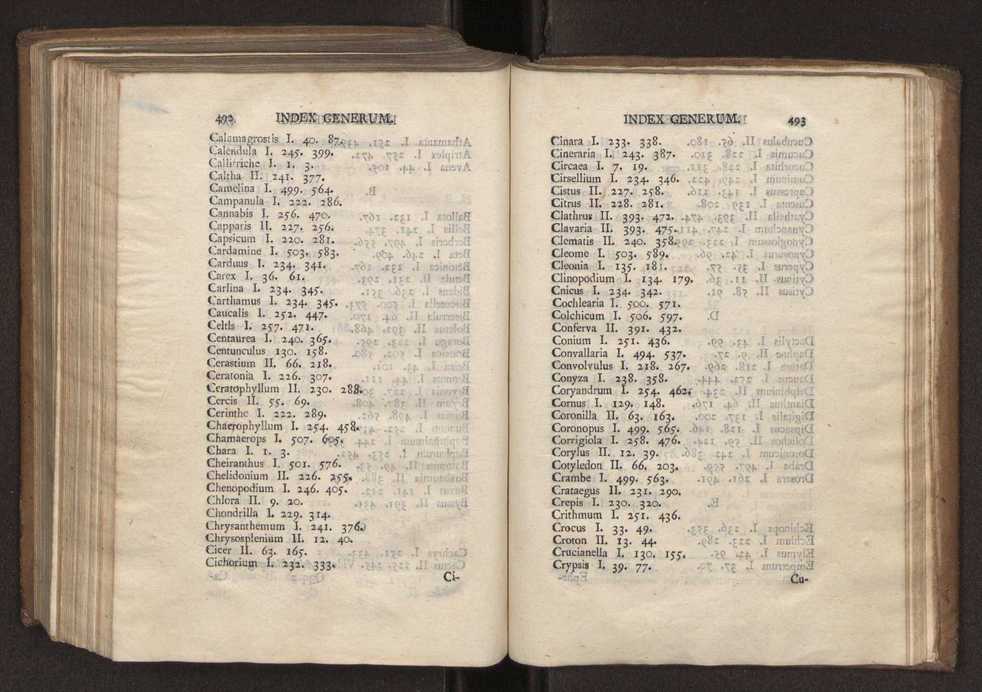 492 INDEX GENERUM.
Calamagrostis I. 40. 87.
Calendula I. 245. 399.
Callitriche I. 1. 3.
Caltha II. 241. 377.
Camelina I. 499. 564.
Campanula I. 222. 286.
Cannabis I. 256. 470.
Capparis II. 227. 256.
Capsicum I. 220. 281.
Cardamine I. 503. 583.
Carduus I. 234. 341.
Carex I. 36. 61.
Carlina I. 234. 345.
Carthamus I. 234. 345.
Caucalis I. 252. 447.
Celtis I. 257. 471.
Centaurea I. 240. 365.
Centunculus 130. 158.
Cerastium II. 66. 218.
Ceratonia I. 226. 307.
Ceratophyllum II. 230. 288.
Cercis II. 55. 69.
Cerinthe I. 222. 289.
Chaerophyllum I. 254. 458.
Chamaerops I. 507. 605.
Chara I. 1. 3.
Cheiranthus I. 501. 576.
Chelidonium II. 226. 255.
Chenopodium I. 246. 405.
Chlora II. 9. 20.
Chondrilla I. 229. 314.
Chrysanthemum I. 241. 376.
Chrysosplenium II. 12. 40.
Cicer II. 63. 165.
Cichorium I. 232. 333.
Ci-
INDEX GENERUM. 493
Cinara I. 233. 338.
Cineraria I. 243. 387.
Circaea I. 7. 19.
Cirsellium I. 234. 346.
Cistus II. 227. 258.
Citrus II. 228. 281.
Clathrus II. 393. 472.
Clavaria II. 393. 475.
Clematis II. 240. 358.
Cleome I. 503. 589.
Cleonia I. 135. 181.
Clinopodium I. 134. 179.
Cnicus I. 234. 342.
Cochlearia I. 500. 571.
Colchicum I. 506. 597.
Conferva II. 391. 432.
Conium I. 251. 436.
Convallaria I. 494. 537.
Convolvulus I. 218. 267.
Conyza I. 238. 358.
Coryandrum I. 254. 462.
Cornus I. 129. 148.
Coronilla II. 63. 163.
Coronopus I. 499. 565.
Corrigiola I. 258. 476.
Corylus II. 12. 39.
Cotyledon II. 66. 203.
Crambe I. 499. 563.
Crataegus II. 231. 290.
Crepis I. 230. 320.
Crithmum I. 251. 436.
Crocus I. 33. 49.
Croton II. 13. 44.
Crucianella I. 130. 155.
Crypsis I. 39. 77.
Cu-